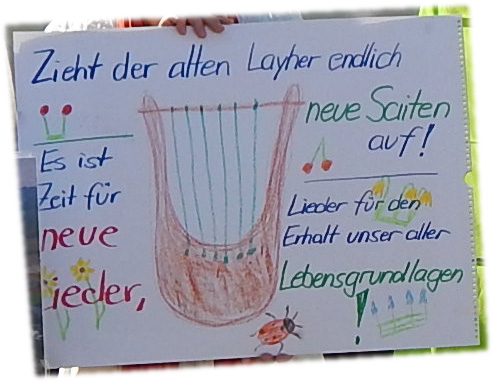 Zieht der alten Layher endlich
neue Saiten
auf!
Es ist
Zeit für
neue
Lieder,
Lieder für den
Erhalt unser aller
Lebensgrundlagen
!